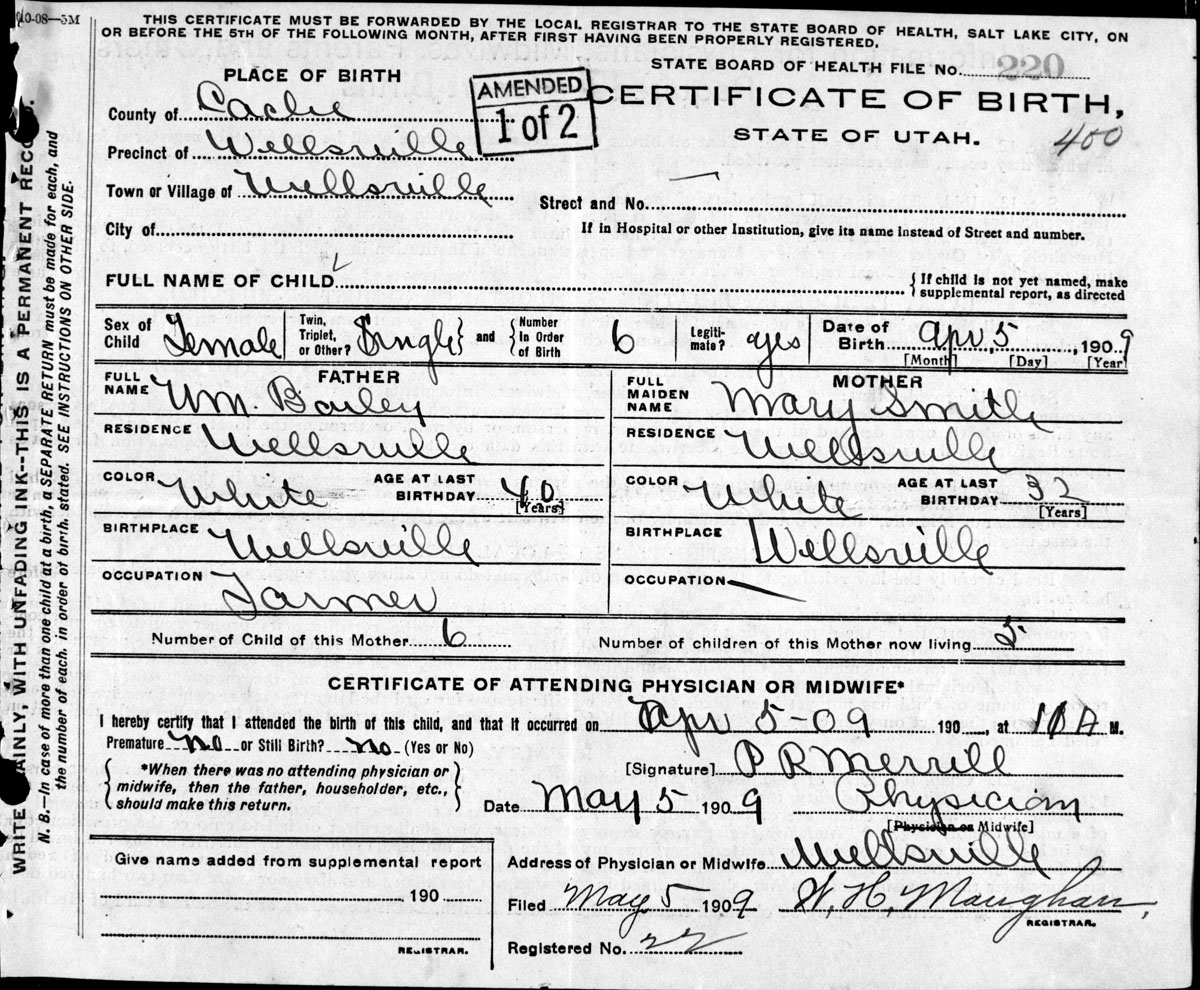 10-08—5M
THIS CERTIFICATE MUST BE FORWARDED BY THE LOCAL REGISTRAR TO THE STATE BOARD OF HEALTH, SALT LAKE CITY, ON
OR BEFORE THE 5TH OF THE FOLLOWING MONTH, AFTER FIRST HAVING BEEN PROPERLY REGISTERED.
STATE BOARD OF HEALTH FILE NO. 220
PLACE OF BIRTH
AMENDED
1 of 2
CERTIFICATE OF BIRTH,
STATE OF UTAH.
400
County of Cache
Precinct of Wellsville
Town or Village of Wellsville
Street and No. —
City of
If in Hospital or other Institution, give its name instead of Street and number.
FULL NAME OF CHILD
{ If child is not yet named, make
supplemental report, as directed
Sex of Child Female
Twin, Triplet, or Other? Single } and { Number In Order of Birth 6
Legitimate? yes
Date of Birth Apr, 5, 1909
[Month] [Day] [Year]
FATHER
FULL NAME Wm. Bailey
RESIDENCE Wellsville
COLOR White AGE AT LAST BIRTHDAY 40 [Years]
BIRTHPLACE Wellsville
OCCUPATION Farmer
MOTHER
FULL MAIDEN NAME Mary Smith
RESIDENCE Wellsville
COLOR White AGE AT LAST BIRTHDAY 32 [Years]
BIRTHPLACE Wellsville
OCCUPATION —
Number of Child of this Mother 6 Number of children of this Mother now living 5
CERTIFICATE OF ATTENDING PHYSICIAN OR MIDWIFE*
I hereby certify that I attended the birth of this child, and that it occurred on Apr 5-09 190, at 10 A M.
Premature No or Still Birth? No (Yes or No)
{ *When there was no attending physician or
midwife, then the father, householder, etc.,
should make this return. }
[Signature] P R Merrill
Date May 5 1909 Physician
[Physician or Midwife]
Give name added from supplemental report
190
REGISTRAR.
Address of Physician or Midwife Wellsville
Filed May 5 1909 W. H. Maughan,
REGISTRAR.
Registered No. 22
WRITE PLAINLY, WITH UNFADING INK--THIS IS A PERMANENT RECORD.
N. B.—In case of more than one child at a birth, a SEPARATE RETURN must be made for each, and
the number of each, in order of birth, stated. SEE INSTRUCTIONS ON OTHER SIDE.